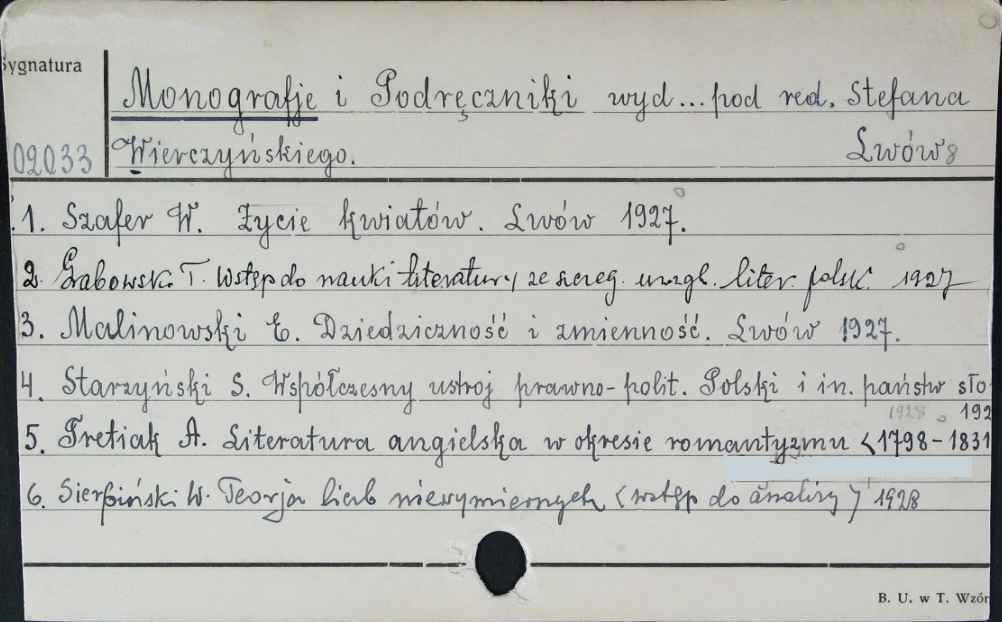 Sygnatura
Monografje i Podręczniki wyd... pod red. Stefana
02033 Wierczyńskiego. Lwów 8
1. Szafer W. Życie kwiatów. Lwów 1927.
2. Grabowski T. Wstęp do nauki literatury ze szczeg. uwzgl. liter. polsk. 1927
3. Malinowski E. Dziedziczność i zmienność. Lwów 1927.
4. Starzyński S. Współczesny ustroj prawno-polit. Polski i in. państw sło
1928 192
5. Tretiak A. Literatura angielska w okresie romantyzmu <1798-1831
6. Sierpiński W. Teorja liczb niewymiernych (wstęp do analizy) 1928
B. U. w T. Wzór